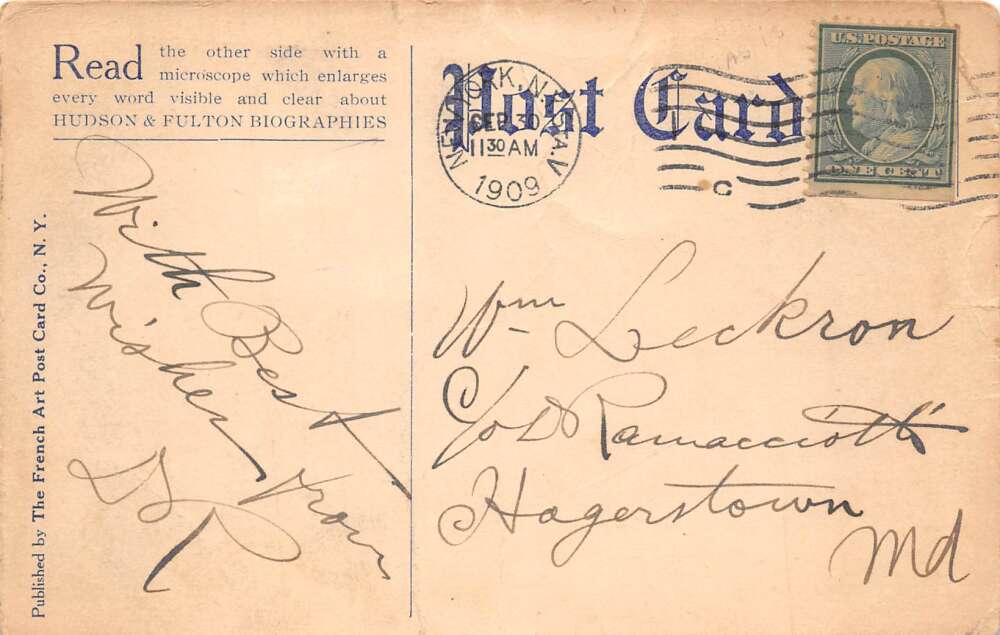 Read the other side with a
microscope which enlarges
every word visible and clear about
HUDSON & FULTON BIOGRAPHIES
Post Card
NEW YORK, N.Y. STA.V
SEP 30
11 30 AM
1909
C
U.S. POSTAGE
ONE CENT
With Best
Wishes from
Wm Leckron
C/o D Ramacciotti
Hagerstown
Md
Published by The French Art Post Card Co., N. Y.